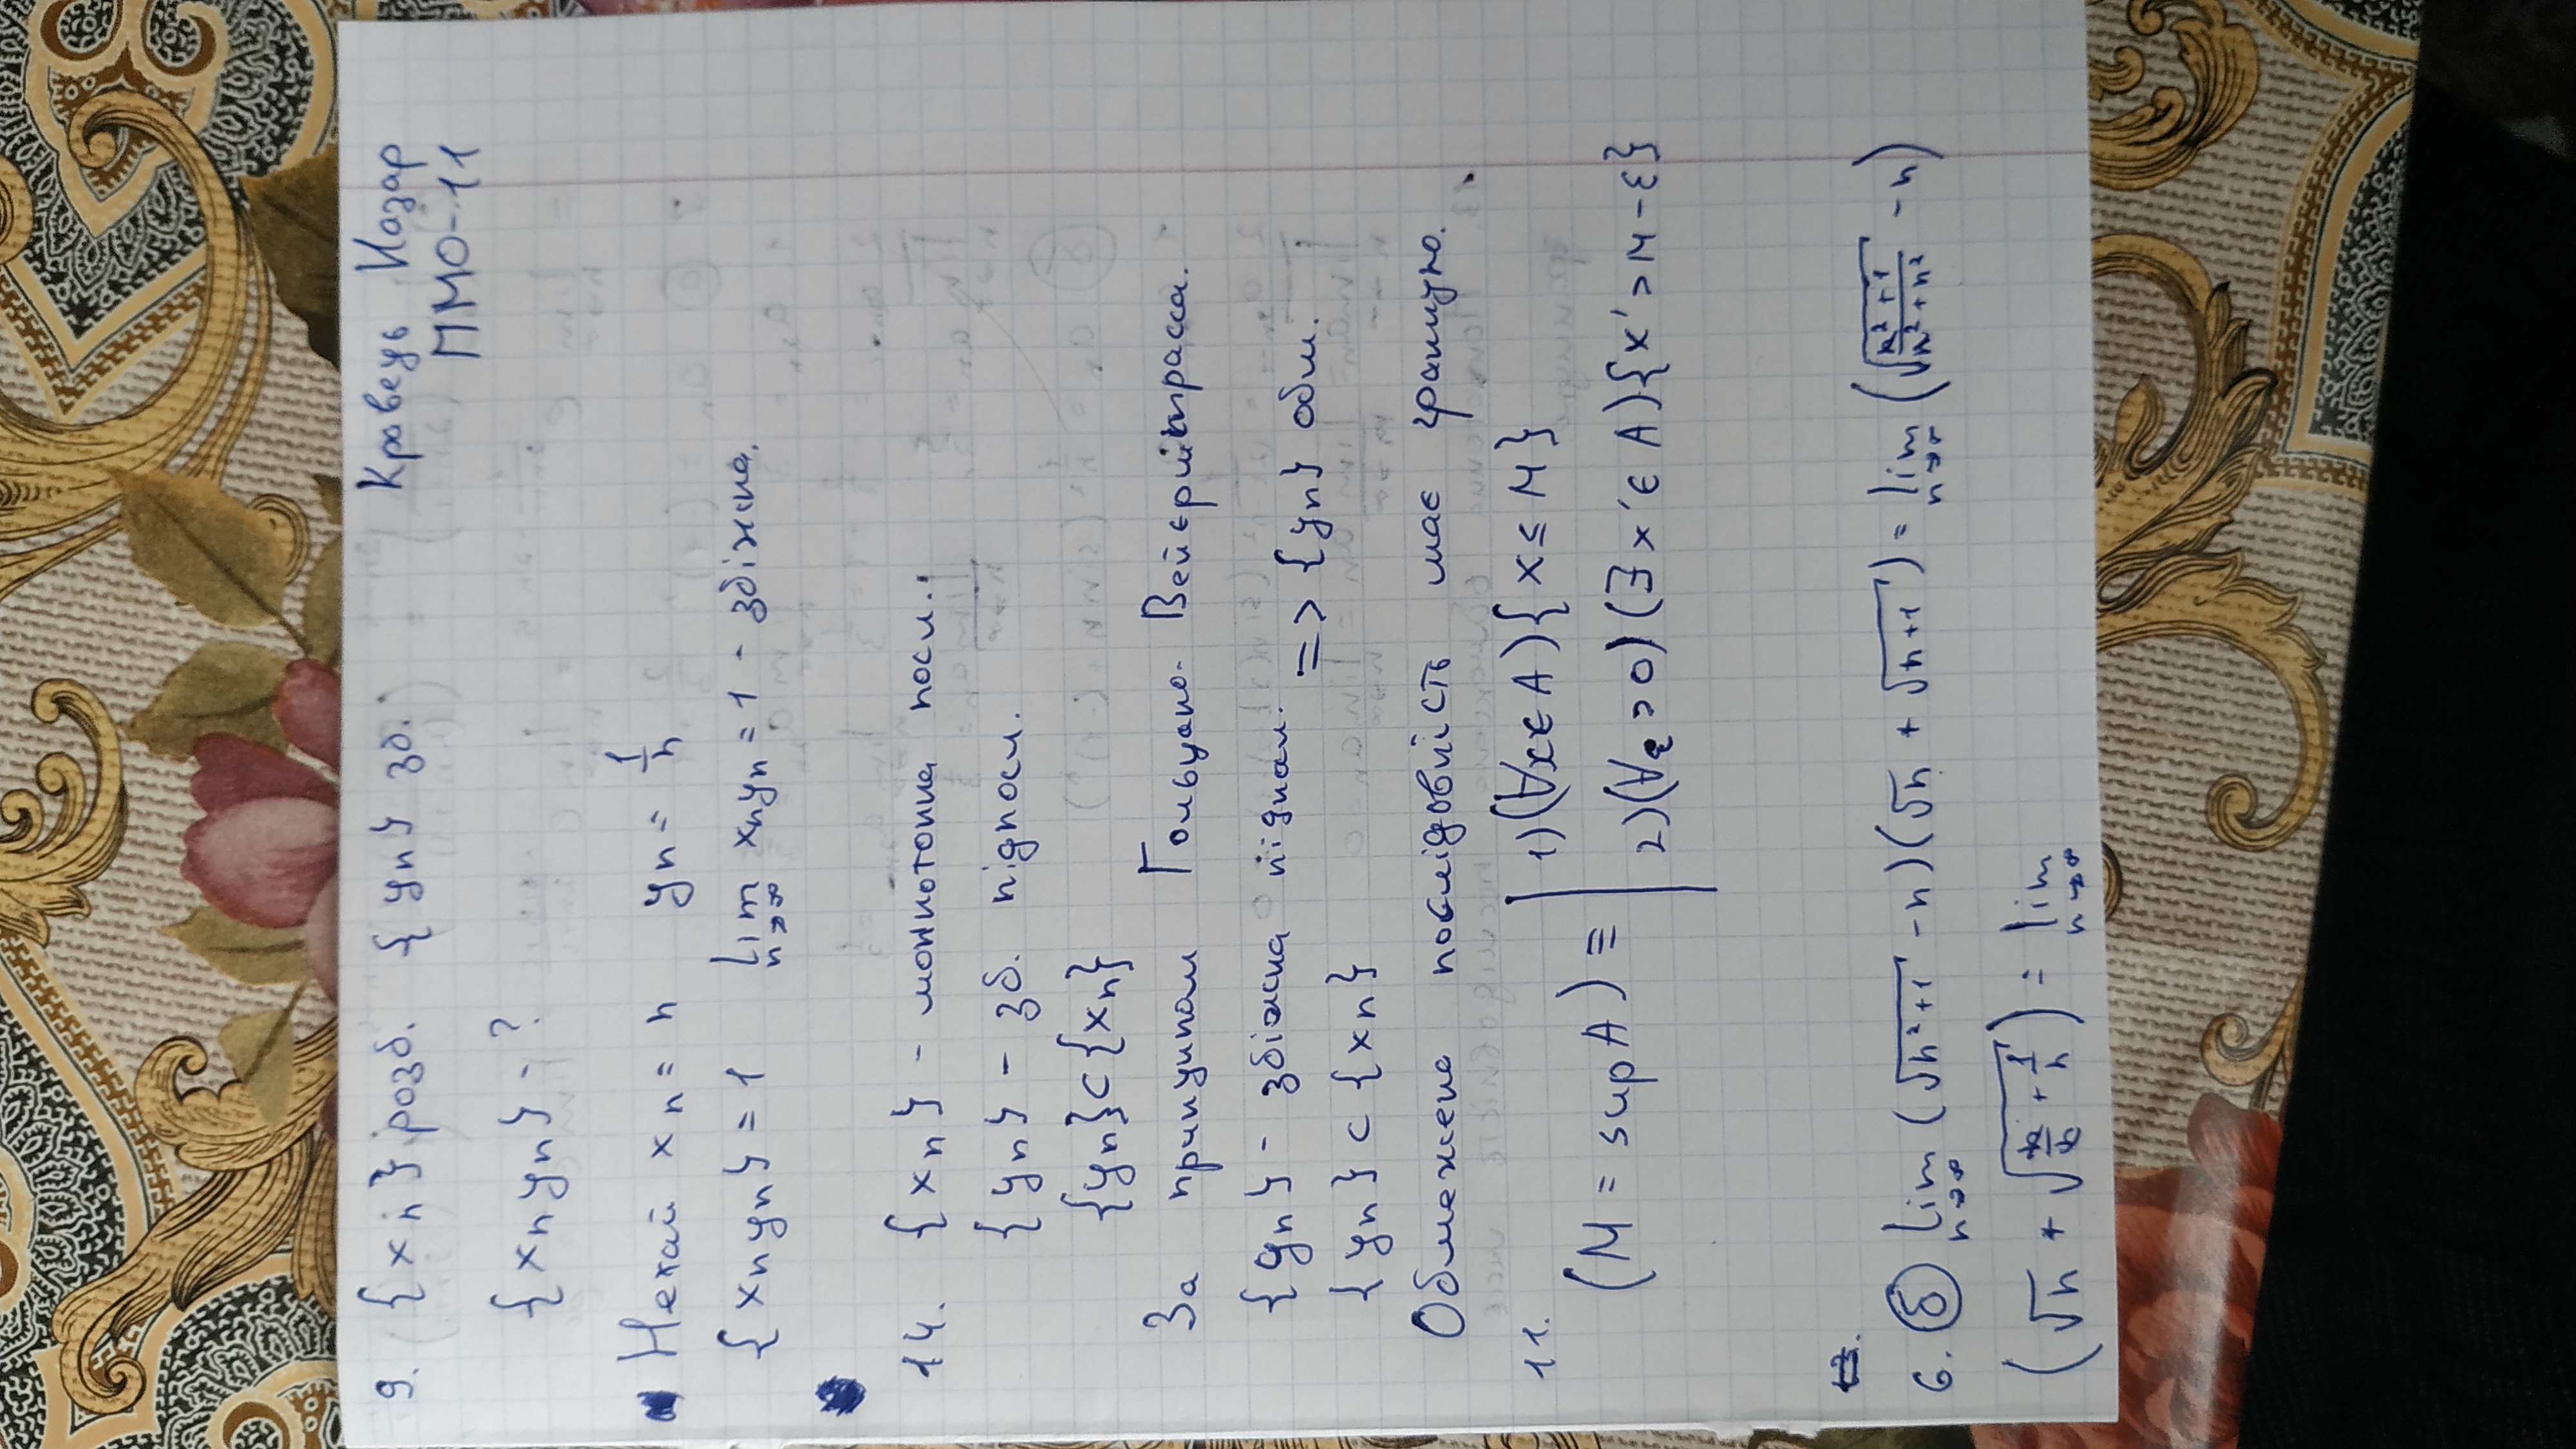 9. {xn} розб. {yn} зб. Кравець Назар
ММО-11
{xn yn} - ?
Нехай xn = n yn = 1/n
{xn yn} = 1 lim n→∞ xnyn = 1 - збіжна.
14. {xn} - монотонна посл.
{yn} - зб. підпосл.
{yn} ⊂ {xn}
За принципом Больцано. Вейєрштрасса.
{yn} - збіжна підпосл. => {yn} обм.
{yn} ⊂ {xn}
Обмежена послідовність має границю.
11. 1) (∀x∈A){x ≤ M}
(M = sup A) ≡
2) (∀ε>0)(∃x'∈A){x' > M-ε}
6. б lim n→∞ (√(n²+1) - n)(√n + √(n+1)) = lim n→∞ (√(n²+1 / n²+n²) - n)
(√n + √(n/n + 1/n)) = lim n→∞